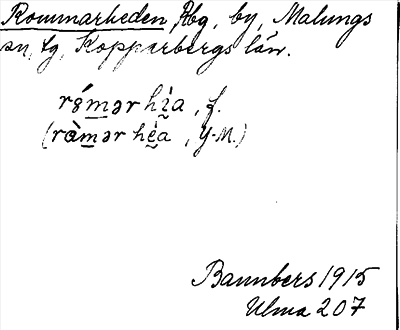 Rommarheden, Rbg, by, Malungs
sn, tg, Kopparbergs län.
rǿmər hìa, f.
(ròmər hèa, Y-M.)
Bannbers 1915
Ulma 207